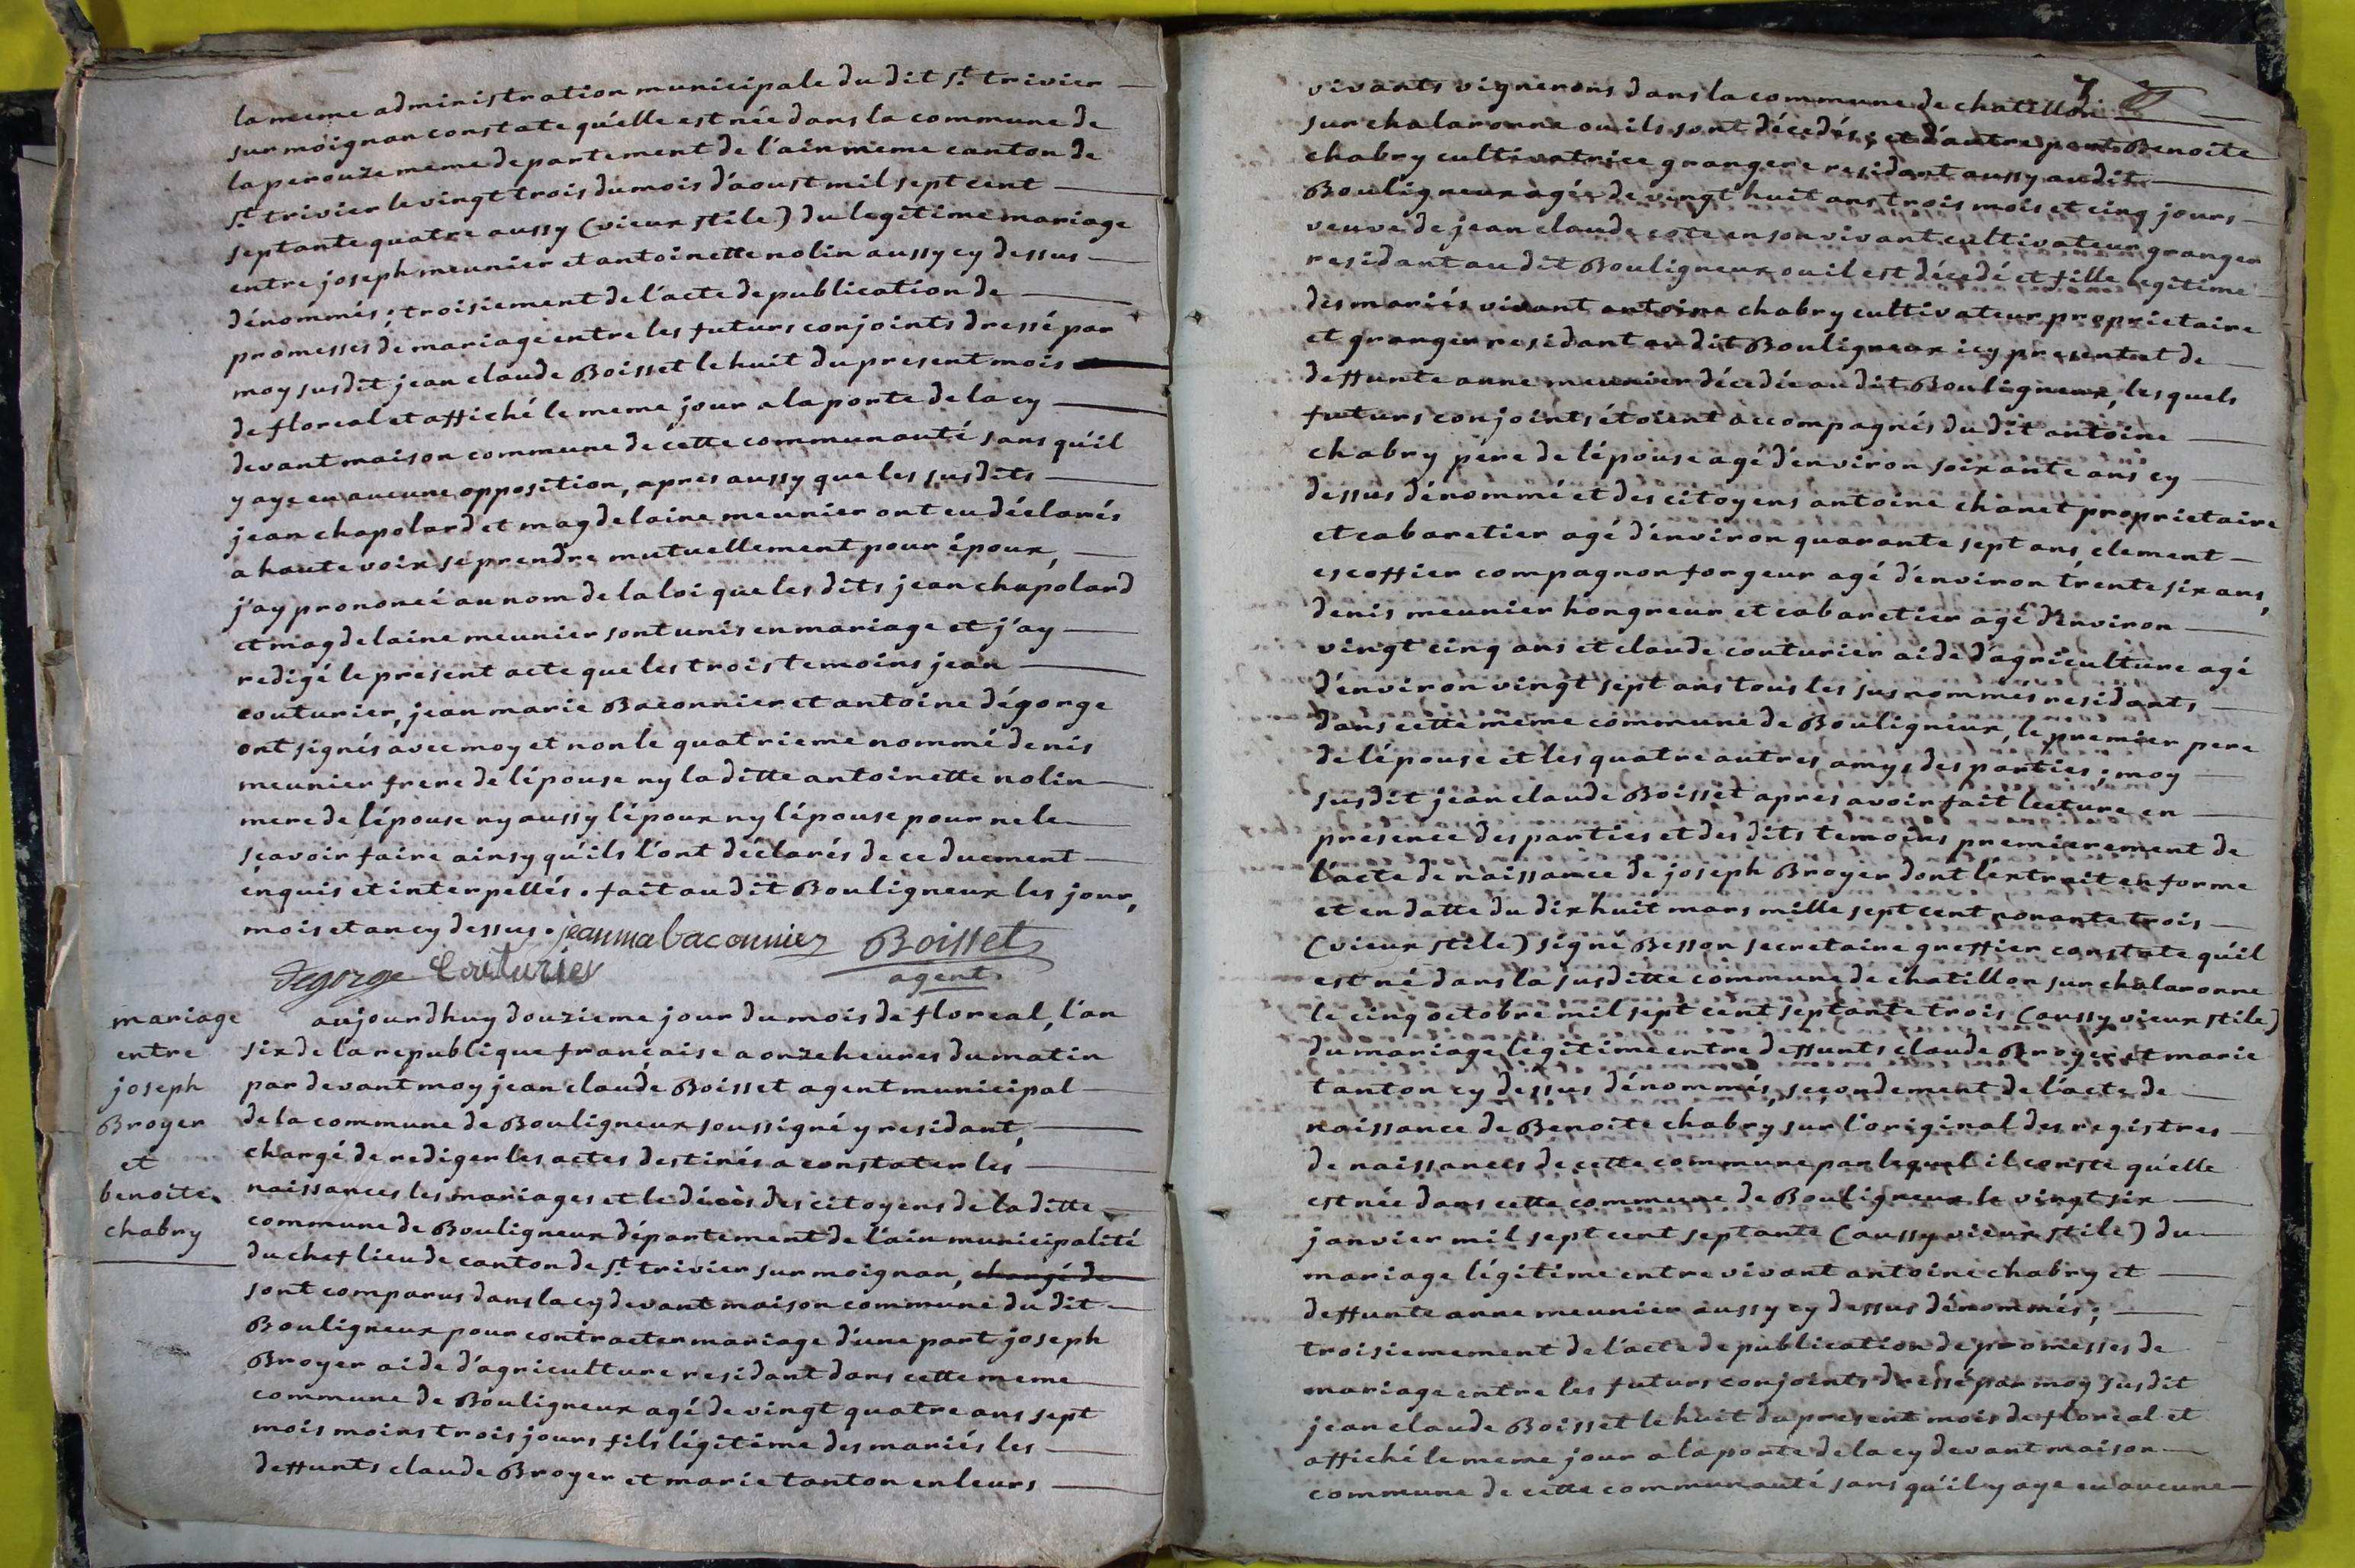 la meme administration municipale du dit st. trivier
sur moignan constate qu'elle est née dans la commune de
la perouze meme departement de l'ain meme canton de
st. trivier le vingt trois du mois d'aoust mil sept cent
septante quatre aussy (vieux stile) du legitime mariage
entre joseph meunier et antoinette nolin aussy cy dessus
dénommés; troisiement de l'acte de publication de
promesses de mariage entre les futurs conjoints dressé par
moy susdit jean claude Boisset le huit du present mois
de floreal et affiché le meme jour a la porte de la cy
devant maison commune de cette communauté sans qu'il
y aye eu aucune opposition, apres aussy que les susdits
jean chapolard et magdelaine meunier ont eu déclarés
a haute voix se prendre mutuellement pour époux,
j'ay prononcé au nom de la loi que les dits jean chapolard
et magdelaine meunier sont unis en mariage et j'ay
redigé le present acte que les trois temoins jean
couturier, jean marie Baconnier et antoine dégorge
ont signés avec moy et non le quatrieme nommé denis
meunier frere de l'épouse ny la ditte antoinette nolin
mere de l'épouse ny aussy l'époux ny l'épouse pour ne le
sçavoir faire ainsy qu'ils l'ont déclarés de ce duement
enquis et interpellés. fait au dit Bouligneux les jour,
mois et an cy dessus. jeanma baconnier Boisset
degorge Couturier agent.
mariage
entre
joseph
Broyer
et
benoite
chabry
aujourdhuy douzieme jour du mois de floreal, l'an
six de la republique française a onze heures du matin
par devant moy jean claude Boisset agent municipal
de la commune de Bouligneux soussigné y residant,
chargé de rediger les actes destinés a constater les
naissances les mariages et le décès des citoyens de la ditte
commune de Bouligneux département de l'ain municipalité
du chef lieu de canton de st. trivier sur moignan, chargé de
sont comparus dans la cy devant maison commune du dit
Bouligneux pour contracter mariage d'une part joseph
Broyer aide d'agriculture residant dans cette meme
commune de Bouligneux agé de vingt quatre ans sept
mois moins trois jours fils légitime des mariés les
deffunts claude Broyer et marie tanton en leurs
7
vivants vignerons dans la commune de chatillon
sur chalaronne ou ils sont décedés; et d'autre part Benoite
chabry cultivatrice grangere residant aussy audit
Bouligneux agée de vingt huit ans trois mois et cinq jours
veuve de jean claude cote en son vivant cultivateur granger
residant au dit Bouligneux ou il est décedé et fille legitime
des mariés vivant antoine chabry cultivateur proprietaire
et granger residant au dit Bouligneux icy present et de
deffunte anne meunier décedée au dit Bouligneux, les quels
futurs conjoints étoient accompagnés du dit antoine
chabry pere de l'épouse agé d'environ soixante ans cy
dessus dénommé et des citoyens antoine chanet proprietaire
et cabaretier agé d'environ quarante sept ans, clement
escoffier compagnon forgeur agé d'environ trente six ans,
denis meunier hongreur et cabaretier agé d'environ
vingt cinq ans et claude couturier aide d'agriculture agé
d'environ vingt sept ans tous les susnommés residants
dans cette meme commune de Bouligneux, le premier pere
de l'épouse et les quatre autres amys des parties; moy
susdit jean claude Boisset apres avoir fait lecture en
presence des parties et des dits temoins premierement de
l'acte de naissance de joseph Broyer dont l'extrait en forme
et en datte du dix huit mars mille sept cent nonante trois
(vieux stile) signé Besson secretaire greffier constate qu'il
est né dans la susditte commune de chatillon sur chalaronne
le cinq octobre mil sept cent septante trois (aussy vieux stile)
du mariage legitime entre deffunts claude Broyer et marie
tanton cy dessus dénommés, secondement de l'acte de
naissance de Benoite chabry sur l'original des registres
de naissances de cette commune par lequel il conste qu'elle
est née dans cette commune de Bouligneux le vingt six
janvier mil sept cent septante (aussy vieux stile) du
mariage légitime entre vivant antoine chabry et
deffunte anne meunier aussy cy dessus dénommés;
troisiemement de l'acte de publication de promesses de
mariage entre les futurs conjoints dressé par moy susdit
jean claude Boisset le huit du present mois de floreal et
affiché le meme jour a la porte de la cy devant maison
commune de cette communauté sans qu'il y aye eu aucune